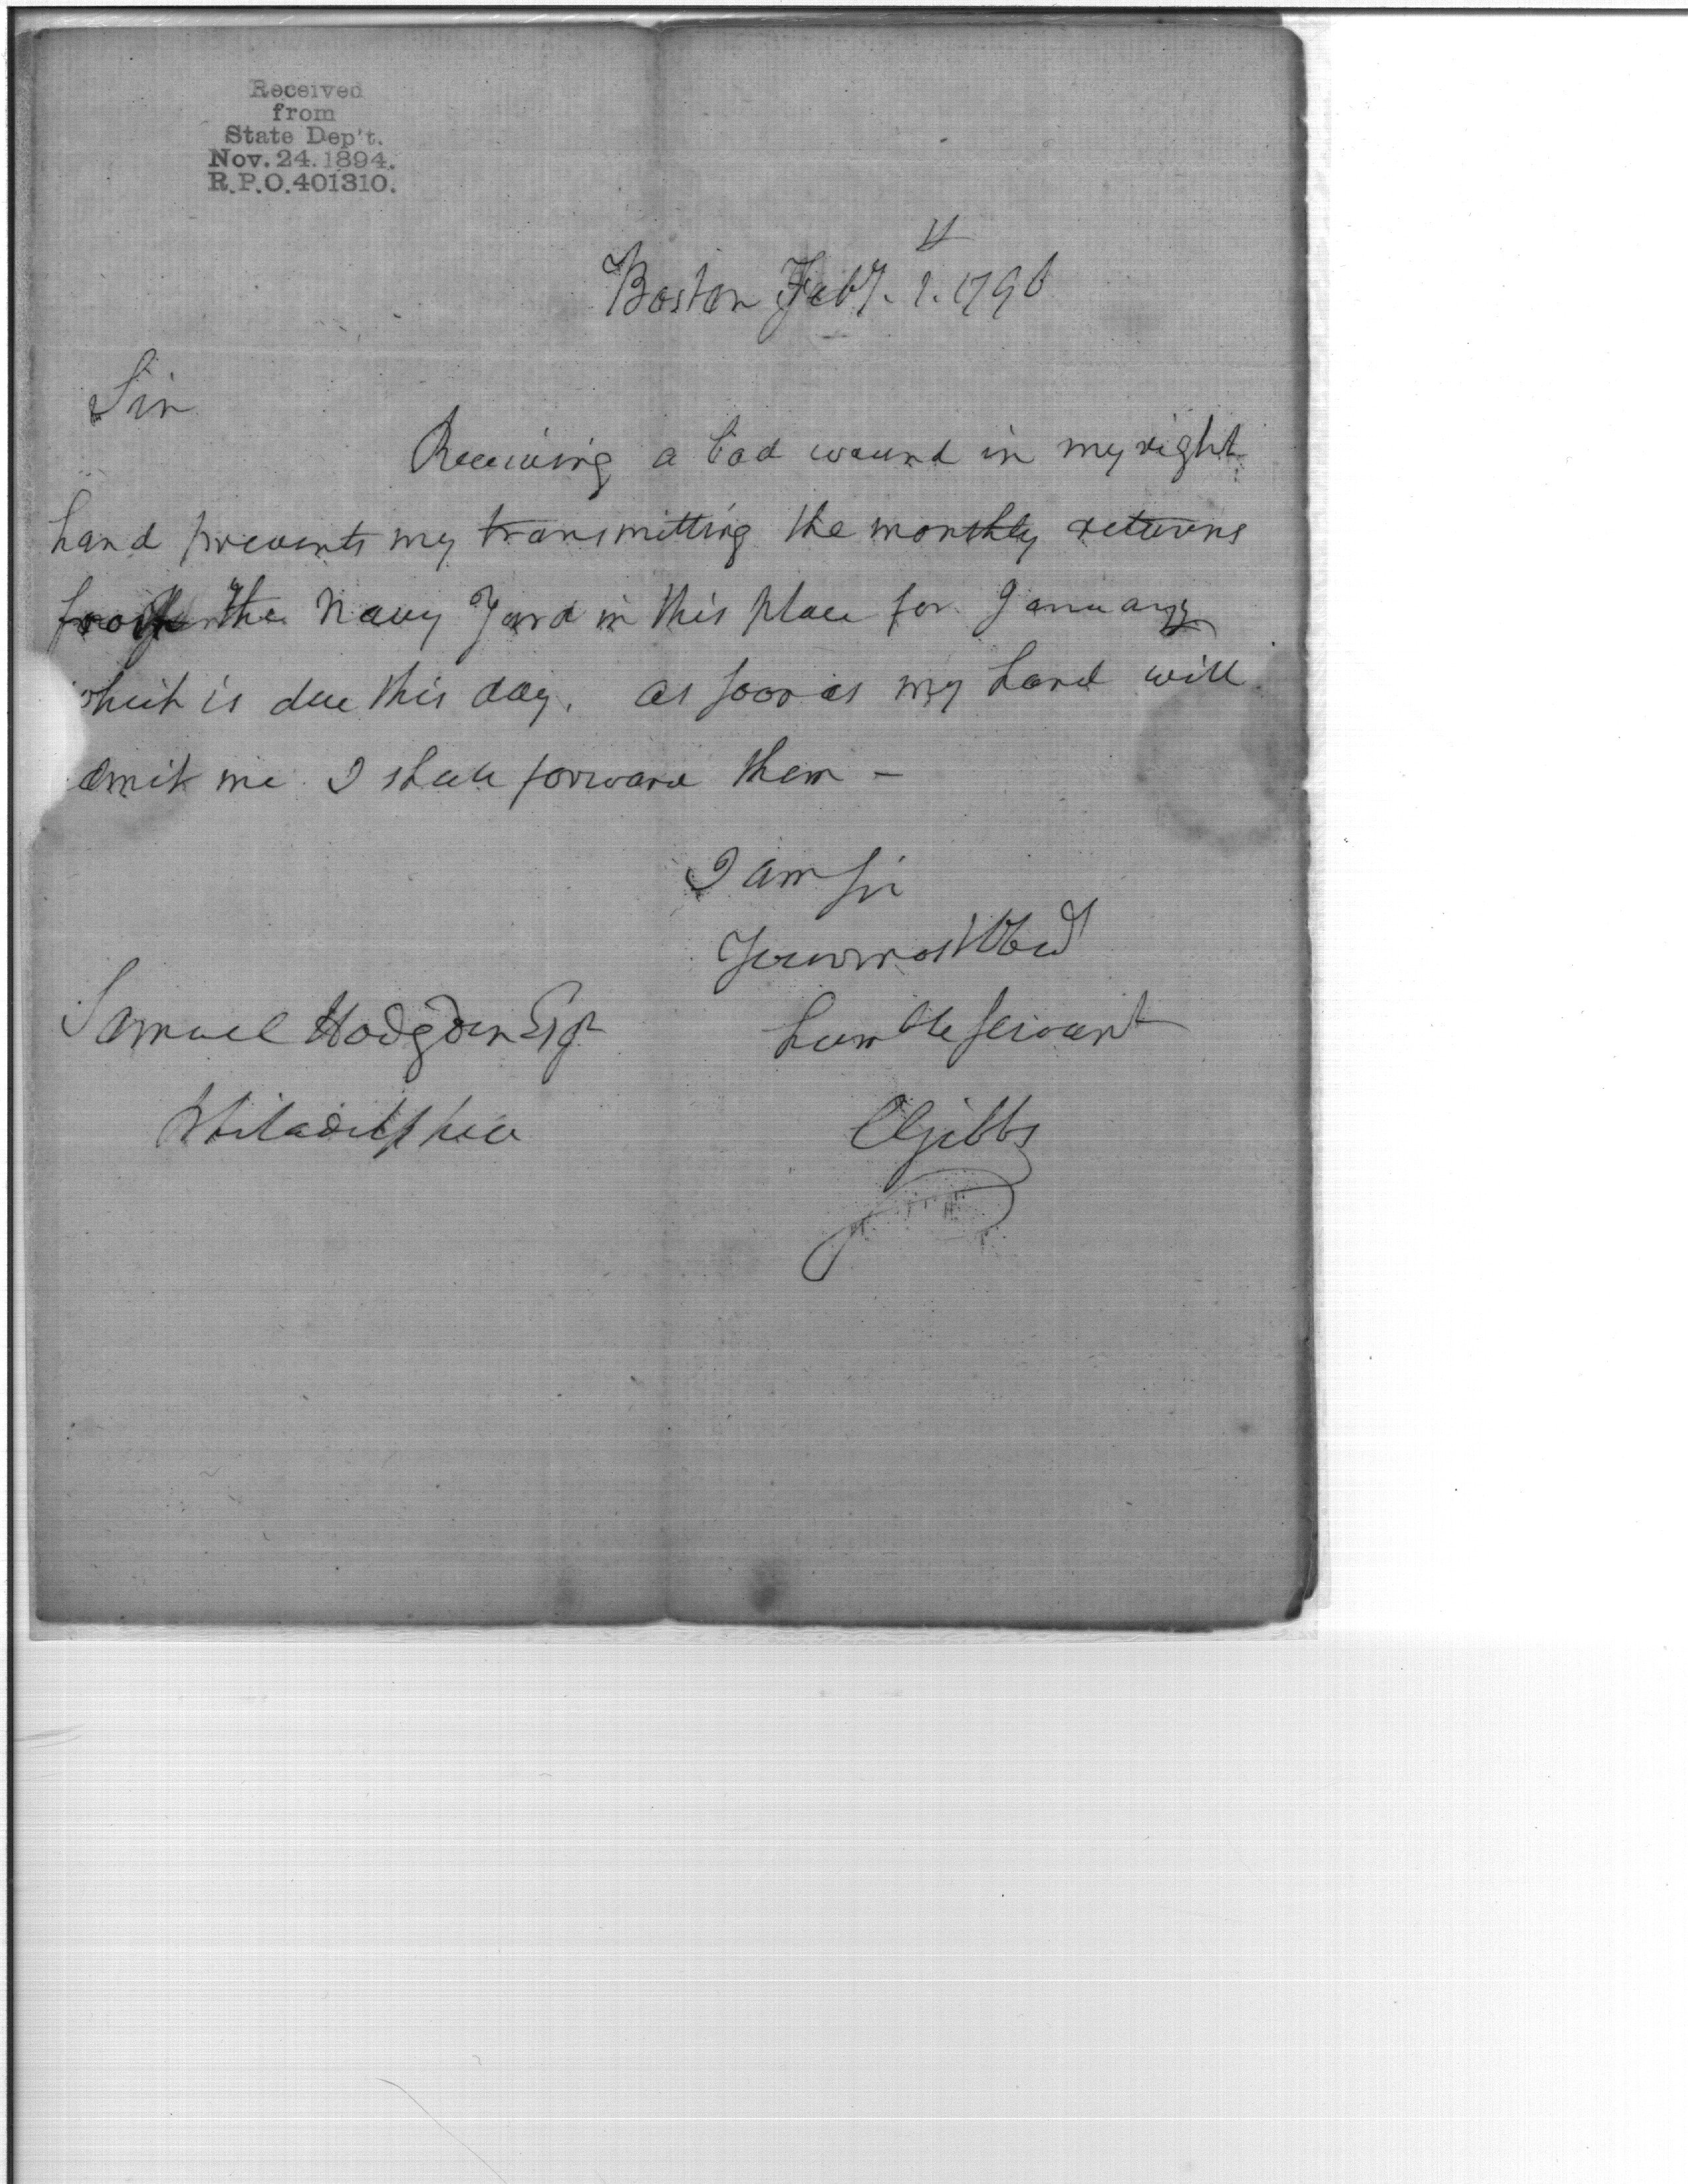 Received
from
State Dep't.
Nov. 24. 1894.
R.P.O. 401310.
Boston Feby. 1. 1796
Sir
Receiving a bad wound in my right
hand prevents my transmitting the monthly returns
from the Navy Yard in this place for January
which is due this day. as soon as my hand will
admit me I shall forward them –
I am Sir
Your most Obed
humble servant
Samuel Hodgdon Esqr
Philadelphia
CGibbs